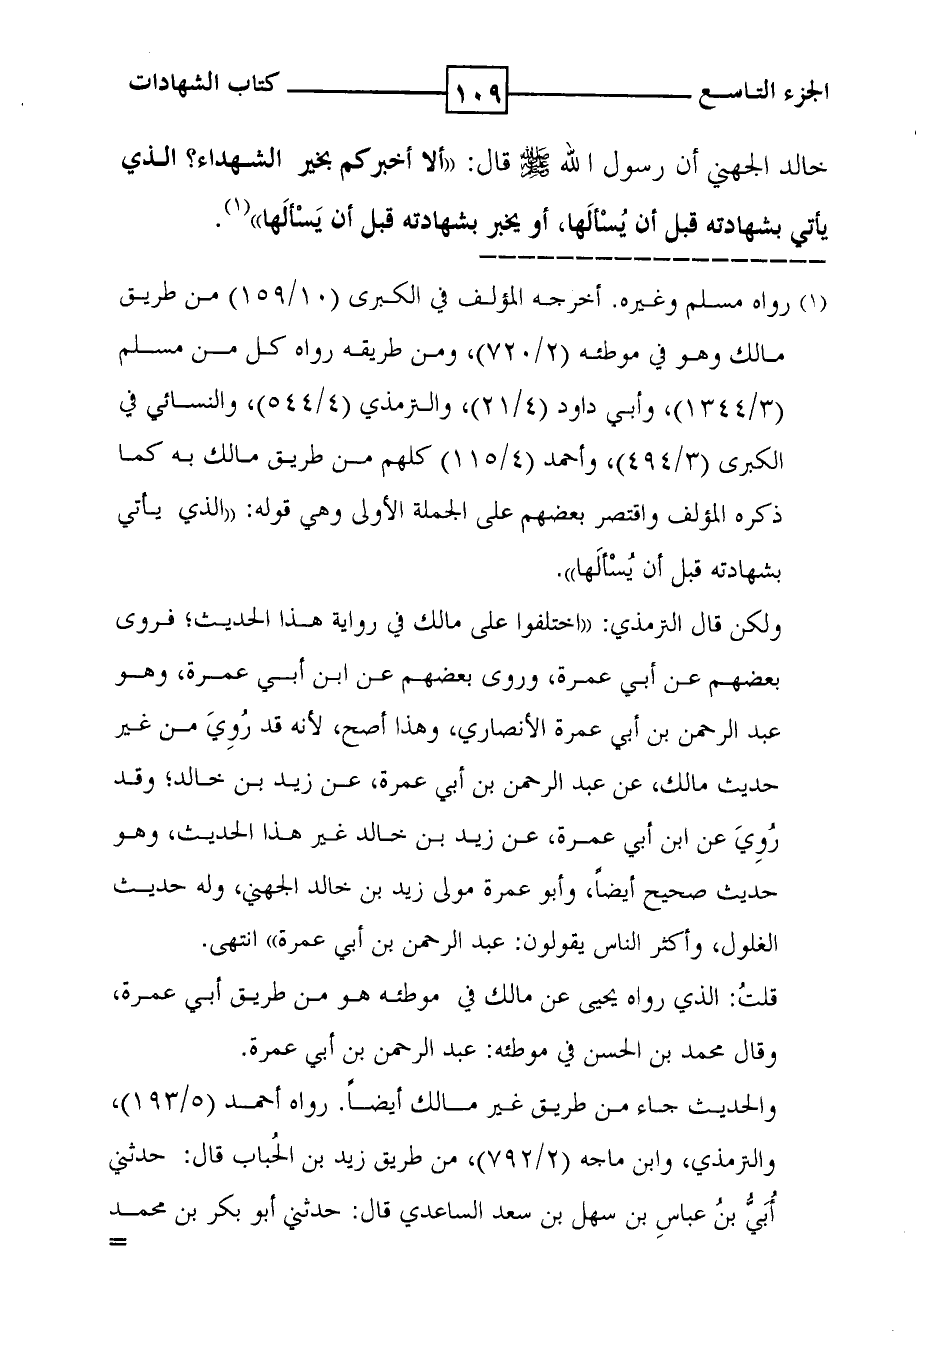 الجزء التاسع ١٠٩ كتاب الشهادات
خالد الجهني أن رسول الله ﷺ قال: ((ألا أخبركم بخير الشهداء؟ الذي
يأتي بشهادته قبل أن يُسْألَها، أو يخبر بشهادته قبل أن يَسْألَها))(١).
(١) رواه مسلم وغيره. أخرجه المؤلف في الكبرى (١٥٩/١٠) من طريق
مالك وهو في موطئه (٧٢٠/٢)، ومن طريقه رواه كل من مسلم
(١٣٤٤/٣)، وأبي داود (٢١/٤)، والترمذي (٥٤٤/٤)، والنسائي في
الكبرى (٤٩٤/٣)، وأحمد (١١٥/٤) كلهم من طريق مالك به كما
ذكره المؤلف واقتصر بعضهم على الجملة الأولى وهي قوله: ((الذي يأتي
بشهادته قبل أن يُسْألَها)).
ولكن قال الترمذي: ((اختلفوا على مالك في رواية هذا الحديث؛ فروى
بعضهم عن أبي عمرة، وروى بعضهم عن ابن أبي عمرة، وهو
عبد الرحمن بن أبي عمرة الأنصاري، وهذا أصح، لأنه قد رُوِيَ من غير
حديث مالك، عن عبد الرحمن بن أبي عمرة، عن زيد بن خالد؛ وقد
رُوِيَ عن ابن أبي عمرة، عن زيد بن خالد غير هذا الحديث، وهو
حديث صحيح أيضاً، وأبو عمرة مولى زيد بن خالد الجهني، وله حديث
الغلول، وأكثر الناس يقولون: عبد الرحمن بن أبي عمرة)) انتهى.
قلتُ: الذي رواه يحيى عن مالك في موطئه هو من طريق أبي عمرة،
وقال محمد بن الحسن في موطئه: عبد الرحمن بن أبي عمرة.
والحديث جاء من طريق غير مالك أيضاً. رواه أحمد (١٩٣/٥)،
والترمذي، وابن ماجه (٧٩٢/٢)، من طريق زيد بن الحُباب قال: حدثني
أُبَيُّ بنُ عباسِ بن سهل بن سعد الساعدي قال: حدثني أبو بكر بن محمد
=